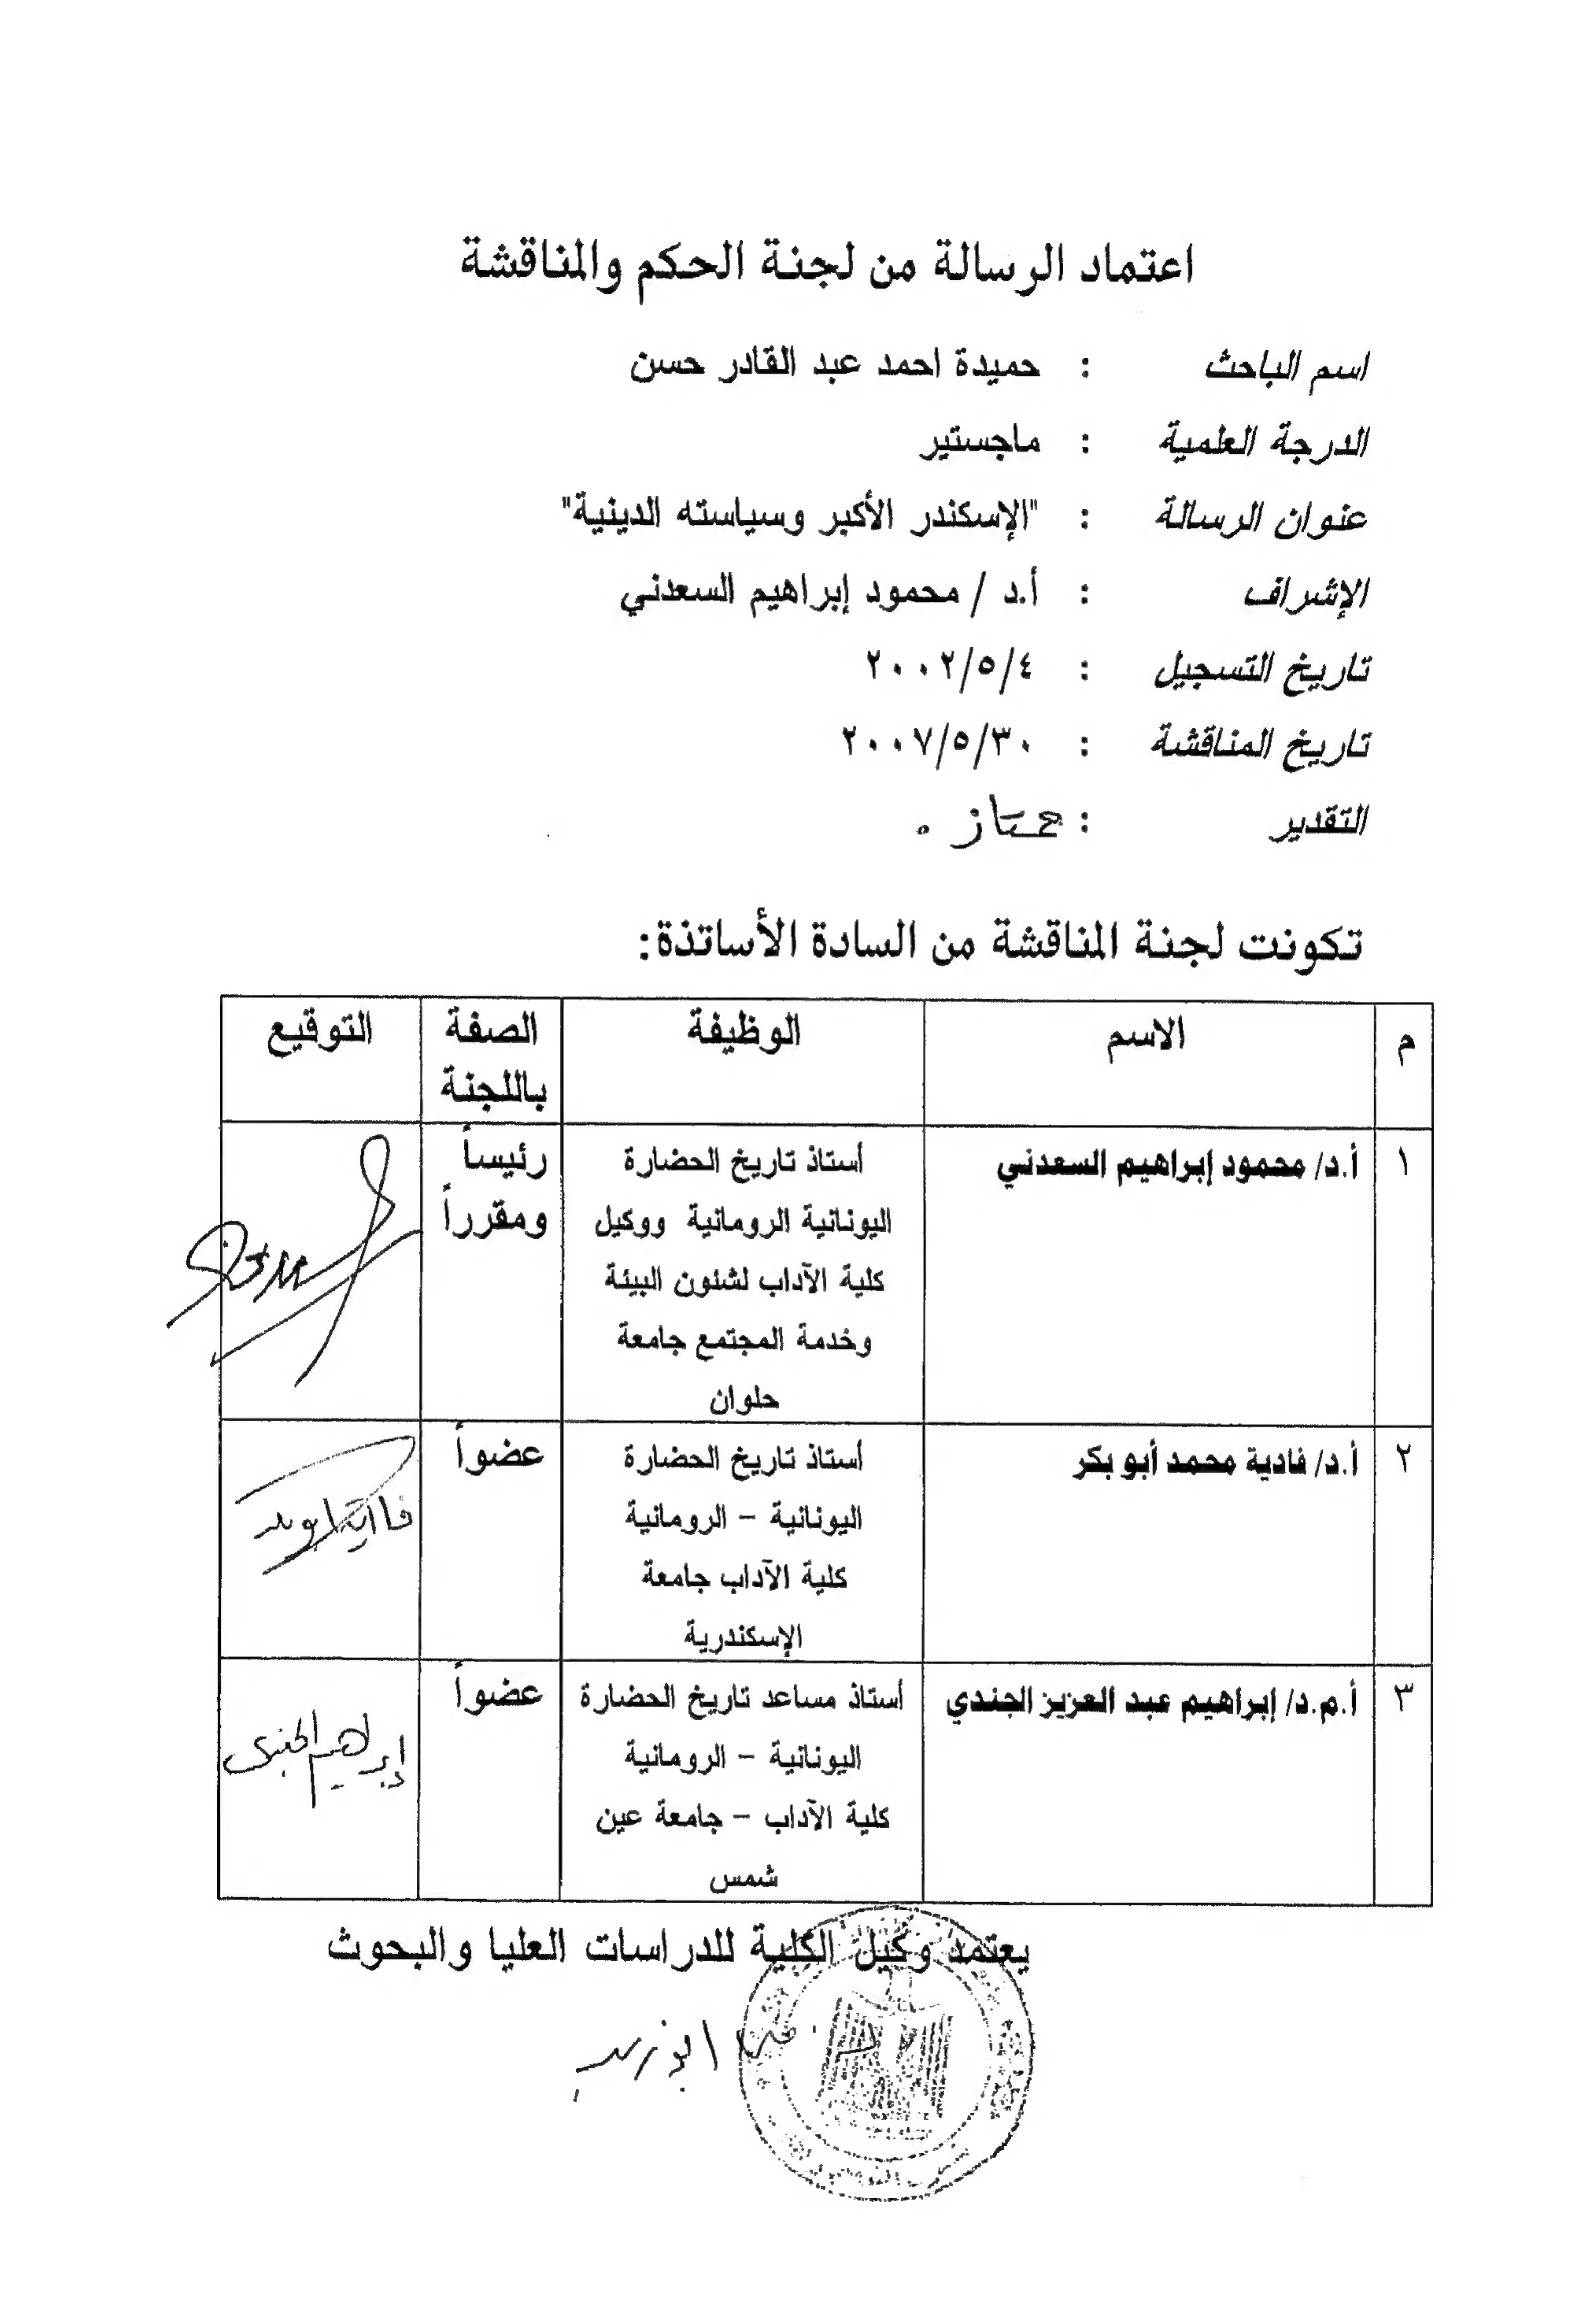 اعتماد الرسالة من لجنة الحكم والمناقشة
اسم الباحث : حميدة احمد عبد القادر حسن
الدرجة العلمية : ماجستير
عنوان الرسالة : "الإسكندر الأكبر وسياسته الدينية"
الإشراف : أ.د / محمود إبراهيم السعدني
تاريخ التسجيل : ٢٠٠٢/٥/٤
تاريخ المناقشة : ٢٠٠٧/٥/٣٠
التقدير : ممتاز .
تكونت لجنة المناقشة من السادة الأساتذة:
م الاسم الوظيفة الصفة التوقيع
باللجنة
١ أ.د/ محمود إبراهيم السعدني أستاذ تاريخ الحضارة رئيساً
اليونانية الرومانية ووكيل ومقرراً
كلية الآداب لشئون البيئة
وخدمة المجتمع جامعة
حلوان
٢ أ.د/ فادية محمد أبو بكر أستاذ تاريخ الحضارة عضواً
اليونانية – الرومانية
كلية الآداب جامعة
الإسكندرية
٣ أ.م.د/ إبراهيم عبد العزيز الجندي أستاذ مساعد تاريخ الحضارة عضواً
اليونانية – الرومانية إبراهيم الجندى
كلية الآداب – جامعة عين
شمس
يعتمد وكيل الكلية للدراسات العليا والبحوث